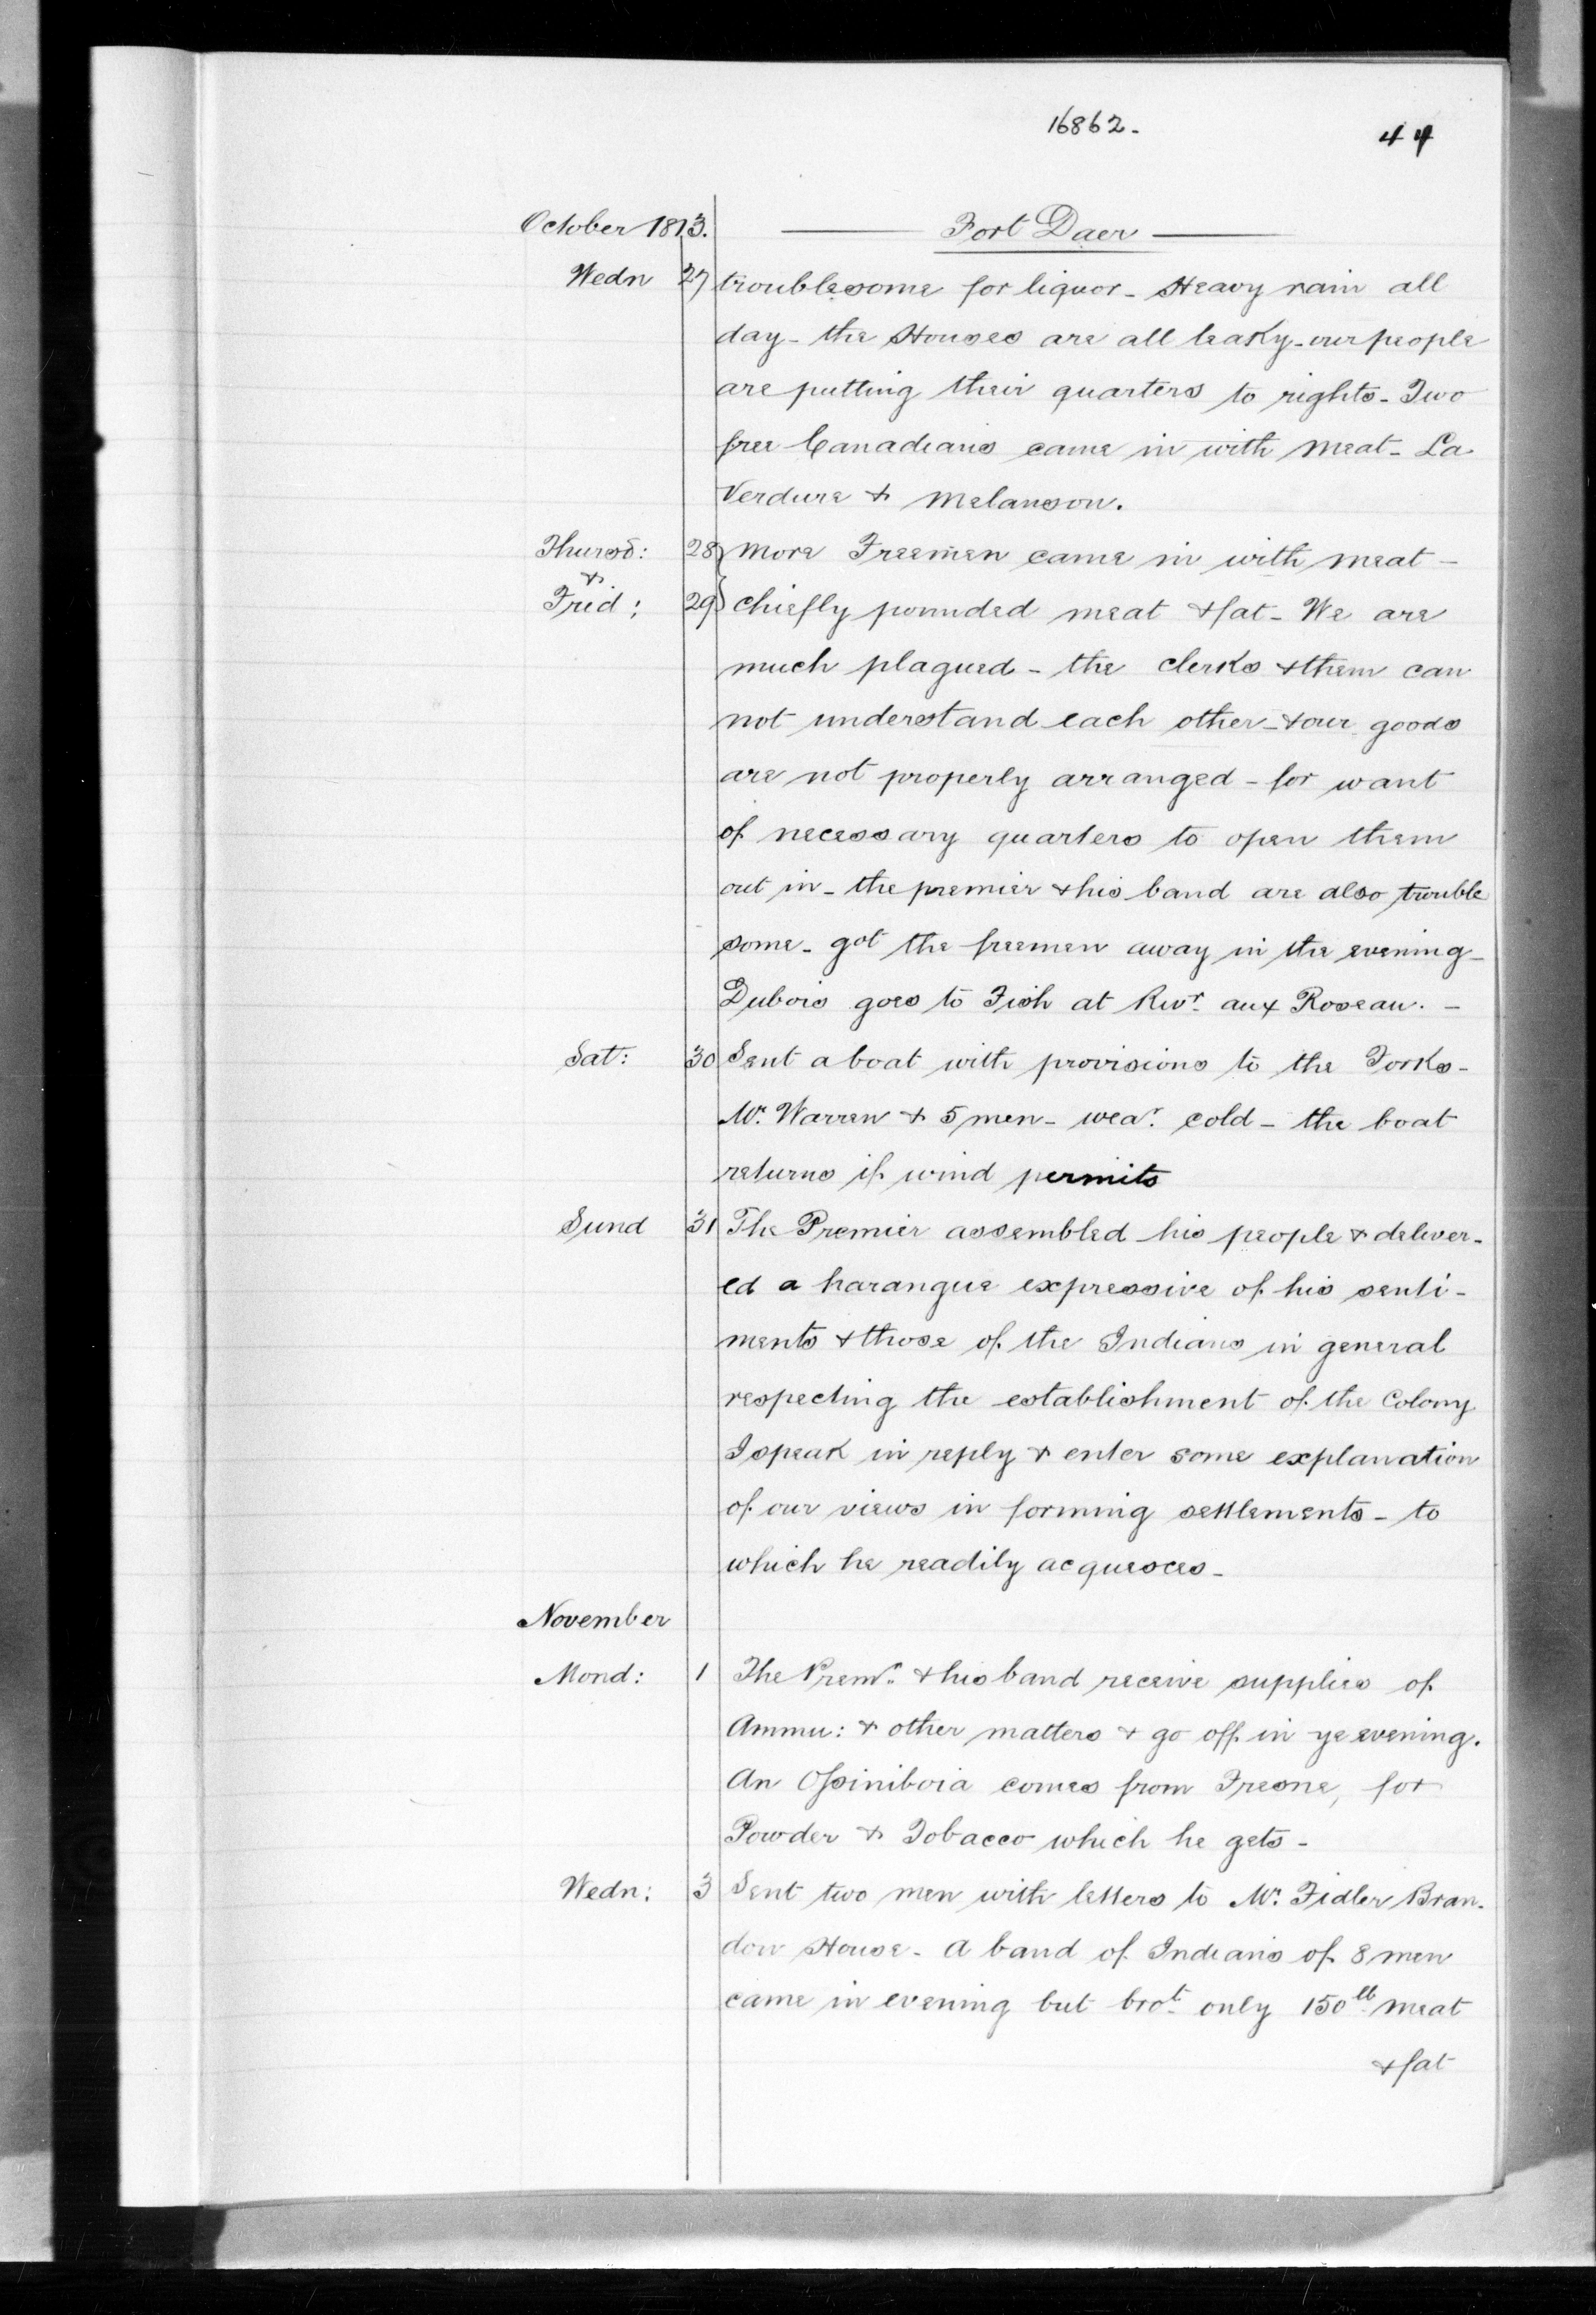 16862-
44
October 1813. Fort Daer
Wedn 27 troublesome for liquor - Heavy rain all
day - the Houses are all leaky - our people
are putting their quarters to rights - Two
free Canadians came in with meat - La
Verdure & Melanson.
Thursd: 28 more Freemen came in with meat -
&
Frid: 29 chiefly pounded meat & fat - We are
much plagued - the clerks & them can
not understand each other - & our goods
are not properly arranged - for want
of necessary quarters to open them
out in - the premier & his band are also trouble
some - got the freemen away in the evening -
Dubois goes to Fish at Rivr. aux Roseau. -
Sat: 30 Sent a boat with provisions to the Forks -
Mr. Warren & 5 men - wear. cold - the boat
returns if wind permits
Sund 31 The Premier assembled his people & deliver-
ed a harangue expressive of his senti-
ments & those of the Indians in general
respecting the establishment of the Colony
I speak in reply & enter some explanation
of our views in forming settlements - to
which he readily acquesces -
November
Mond: 1 The Premr. & his band receive supplies of
Ammu: & other matters & go off in ye evening.
An Ossiniboia comes from Fresne, for
Powder & Tobacco which he gets -
Wedn: 3 Sent two men with letters to Mr. Fidler Bran-
don House - A band of Indians of 8 men
came in evening but brot. only 150 lb meat
& fat